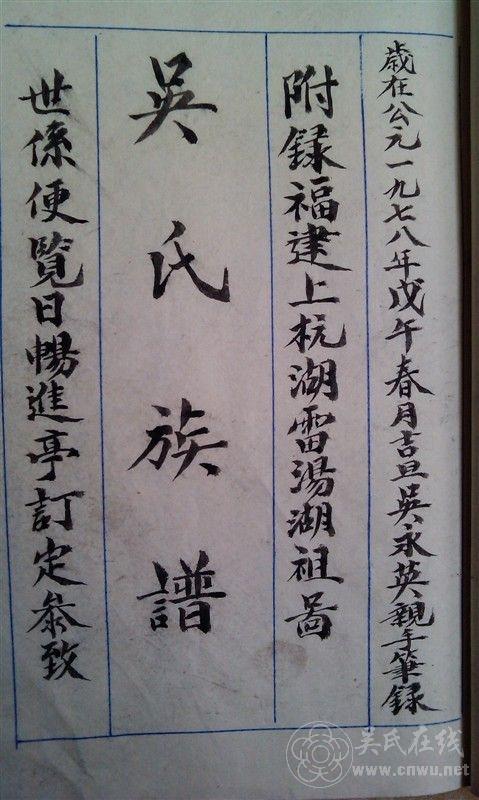 歲在公元一九七八年戊午春月吉旦吳永英親手筆録
附録福建上杭湖雷湯湖祖啚
吳氏族譜
世係便覽日暢進亭訂定叅致
吴氏在线
www.cnwu.net